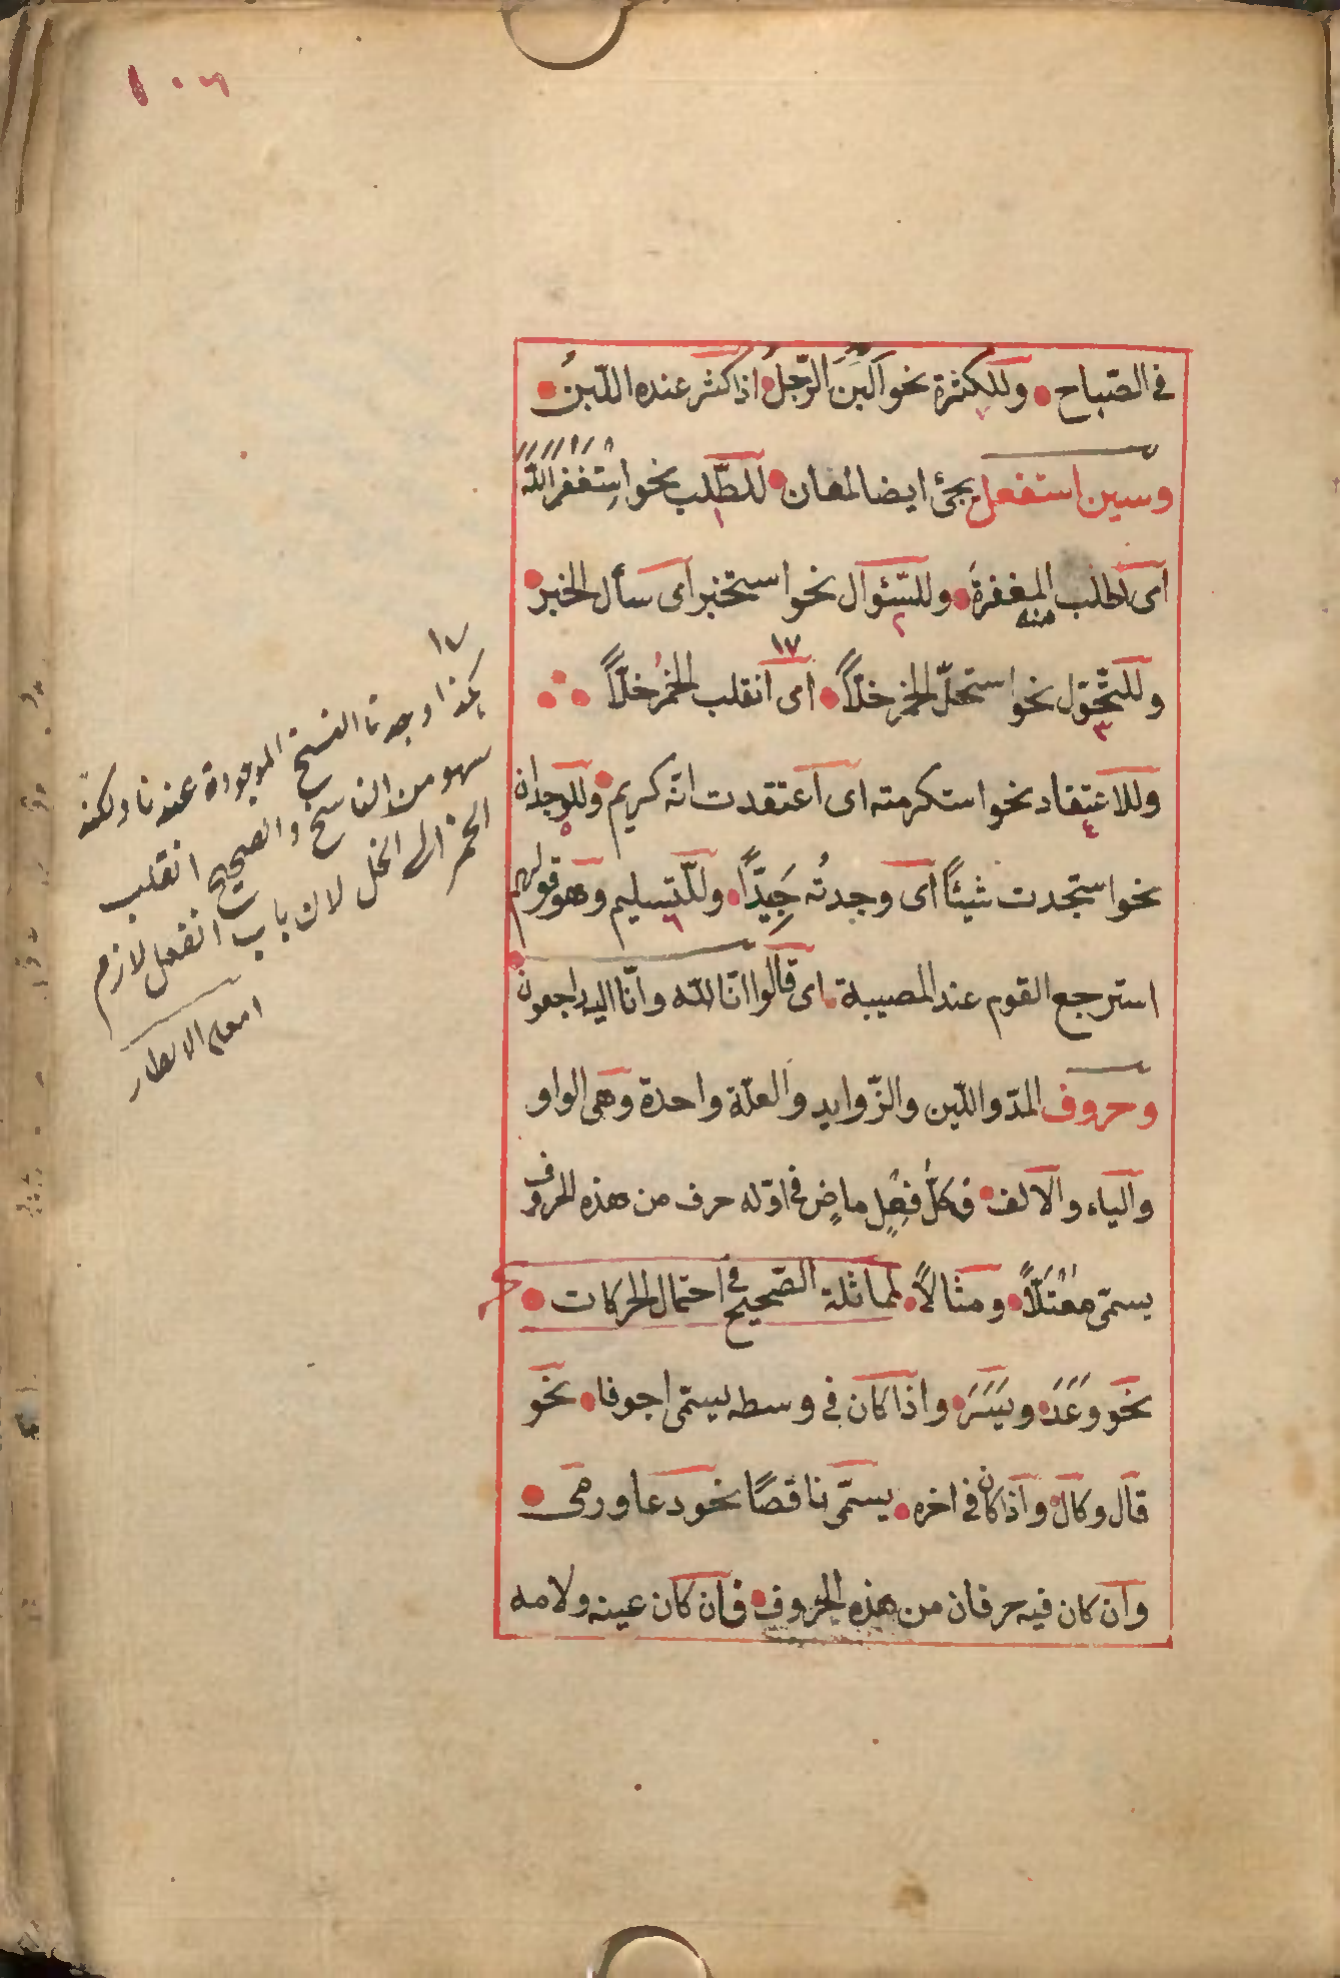 ١٠٦
في الصّباح وللكثرة نحو اَلبَنَ الرّجلُ اذا كثر عنده اللّبنُ
وسين استفعل يجئ ايضا لمعان للطّلب نحو اِستَغفَرَ اللّٰهَ
اى طلب منه المغفرةَ وللسّئوال نحو استخبر اى سأل الخبر
وللتّحوّل نحو استحلّ الخمر خلّاً اى انقلب الخمرُ خلّاً
وللاعتقاد نحو استكرمته اى اعتقدت انّه كريم وللوجدان
نحو استجدت شيئاً اى وجدتُه جَيِّدًا وللتّسليم وهو قولهم
استرجع القوم عند المصيبة اى قالوا انّا للّه وانّا اليه راجعون
وحروف المدّ واللّين والزّوايد والعلّة واحدة وهى الواو
والياء والالف فكلّ فِعْلٍ ماضٍ فى اوّله حرف من هذه الحروف
يسمّى مُعْتَلّاً ومثالاً لمماثلة الصّحيح فى احتمال الحركات
نحو وَعَدَ ويَسَرَ واذا كان في وسطه يسمّى اجوفا نحو
قال وكال واذا كان فى اخره يسمّى ناقصًا نحو دعا ورمى
وان كان فيه حرفان من هذه الحروف فان كان عينه ولامه
١٧
هكذا وجدنا النسخ الموجودة عندنا ولكنّه
سهو من الناسخ والصحيح انقلب
الخمر الى الخل لان باب انفعل لازم
امعان الانظار